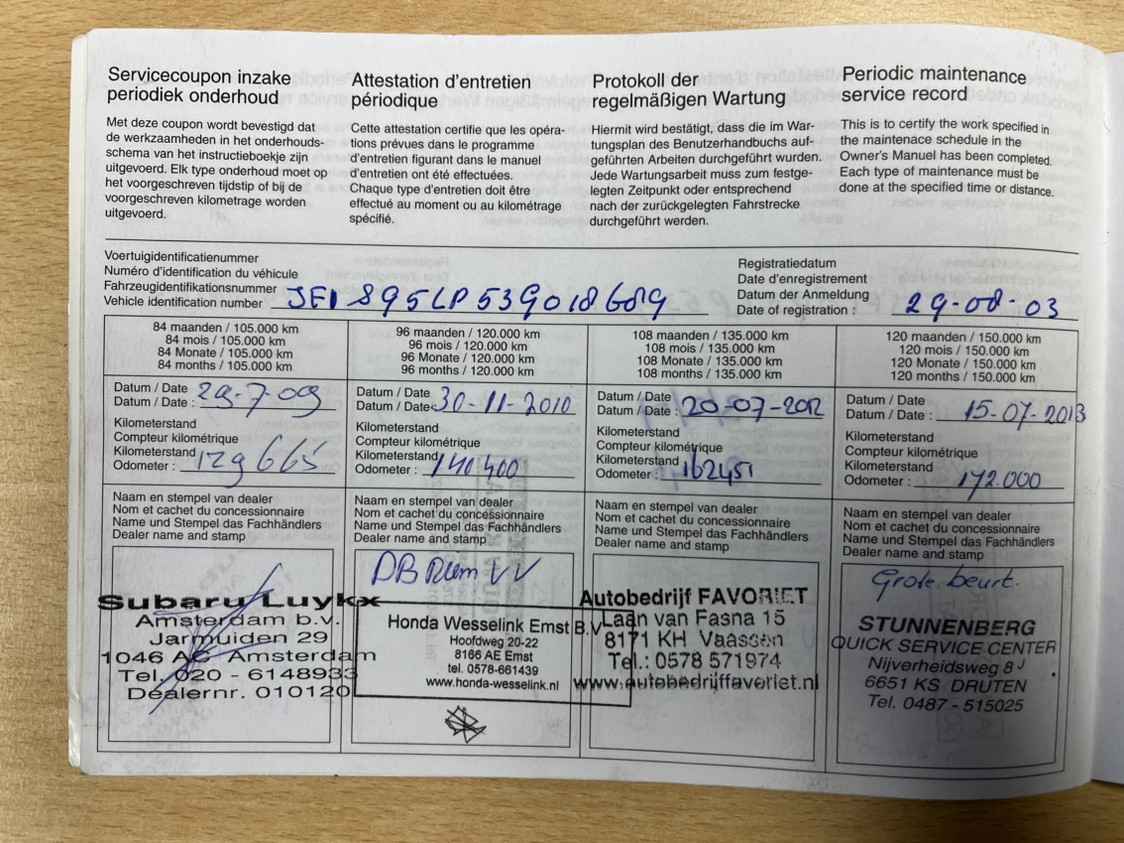 Servicecoupon inzake
periodiek onderhoud
Met deze coupon wordt bevestigd dat
de werkzaamheden in het onderhouds-
schema van het instructieboekje zijn
uitgevoerd. Elk type onderhoud moet op
het voorgeschreven tijdstip of bij de
voorgeschreven kilometrage worden
uitgevoerd.
Attestation d'entretien
périodique
Cette attestation certifie que les opéra-
tions prévues dans le programme
d'entretien figurant dans le manuel
d'entretien ont été effectuées.
Chaque type d'entretien doit être
effectué au moment ou au kilométrage
spécifié.
Protokoll der
regelmäßigen Wartung
Hiermit wird bestätigt, dass die im War-
tungsplan des Benutzerhandbuchs auf-
geführten Arbeiten durchgeführt wurden.
Jede Wartungsarbeit muss zum festge-
legten Zeitpunkt oder entsprechend
nach der zurückgelegten Fahrstrecke
durchgeführt werden.
Periodic maintenance
service record
This is to certify the work specified in
the maintenace schedule in the
Owner's Manual has been completed.
Each type of maintenance must be
done at the specified time or distance.
Voertuigidentificatienummer
Numéro d'identification du véhicule
Fahrzeugidentifikationsnummer
Vehicle identification number JF1 SG5LP53G018689
Registratiedatum
Date d'enregistrement
Datum der Anmeldung
Date of registration : 29-08-03
84 maanden / 105.000 km
84 mois / 105.000 km
84 Monate / 105.000 km
84 months / 105.000 km
Datum / Date
Datum / Date : 29-7-09
Kilometerstand
Compteur kilométrique
Kilometerstand
Odometer : 129665
Naam en stempel van dealer
Nom et cachet du concessionnaire
Name und Stempel das Fachhändlers
Dealer name and stamp
Subaru Luykx
Amsterdam b.v.
Jarmuiden 29
1046 AC Amsterdam
Tel. 020 - 6148933
Dealernr. 010120
96 maanden / 120.000 km
96 mois / 120.000 km
96 Monate / 120.000 km
96 months / 120.000 km
Datum / Date
Datum / Date : 30-11-2010
Kilometerstand
Compteur kilométrique
Kilometerstand
Odometer : 140400
Naam en stempel van dealer
Nom et cachet du concessionnaire
Name und Stempel das Fachhändlers
Dealer name and stamp
Honda Wesselink Emst B.V.
Hoofdweg 20-22
8166 AE Emst
tel. 0578-661439
www.honda-wesselink.nl
108 maanden / 135.000 km
108 mois / 135.000 km
108 Monate / 135.000 km
108 months / 135.000 km
Datum / Date
Datum / Date : 20-07-2012
Kilometerstand
Compteur kilométrique
Kilometerstand
Odometer : 162451
Naam en stempel van dealer
Nom et cachet du concessionnaire
Name und Stempel das Fachhändlers
Dealer name and stamp
Autobedrijf FAVORIET
Laan van Fasna 15
8171 KH Vaassen
Tel.: 0578 571974
www.autobedrijffavoriet.nl
120 maanden / 150.000 km
120 mois / 150.000 km
120 Monate / 150.000 km
120 months / 150.000 km
Datum / Date
Datum / Date : 15-07-2013
Kilometerstand
Compteur kilométrique
Kilometerstand
Odometer : 172.000
Naam en stempel van dealer
Nom et cachet du concessionnaire
Name und Stempel das Fachhändlers
Dealer name and stamp
Grote beurt.
STUNNENBERG
QUICK SERVICE CENTER
Nijverheidsweg 8 J
6651 KS DRUTEN
Tel. 0487 - 515025